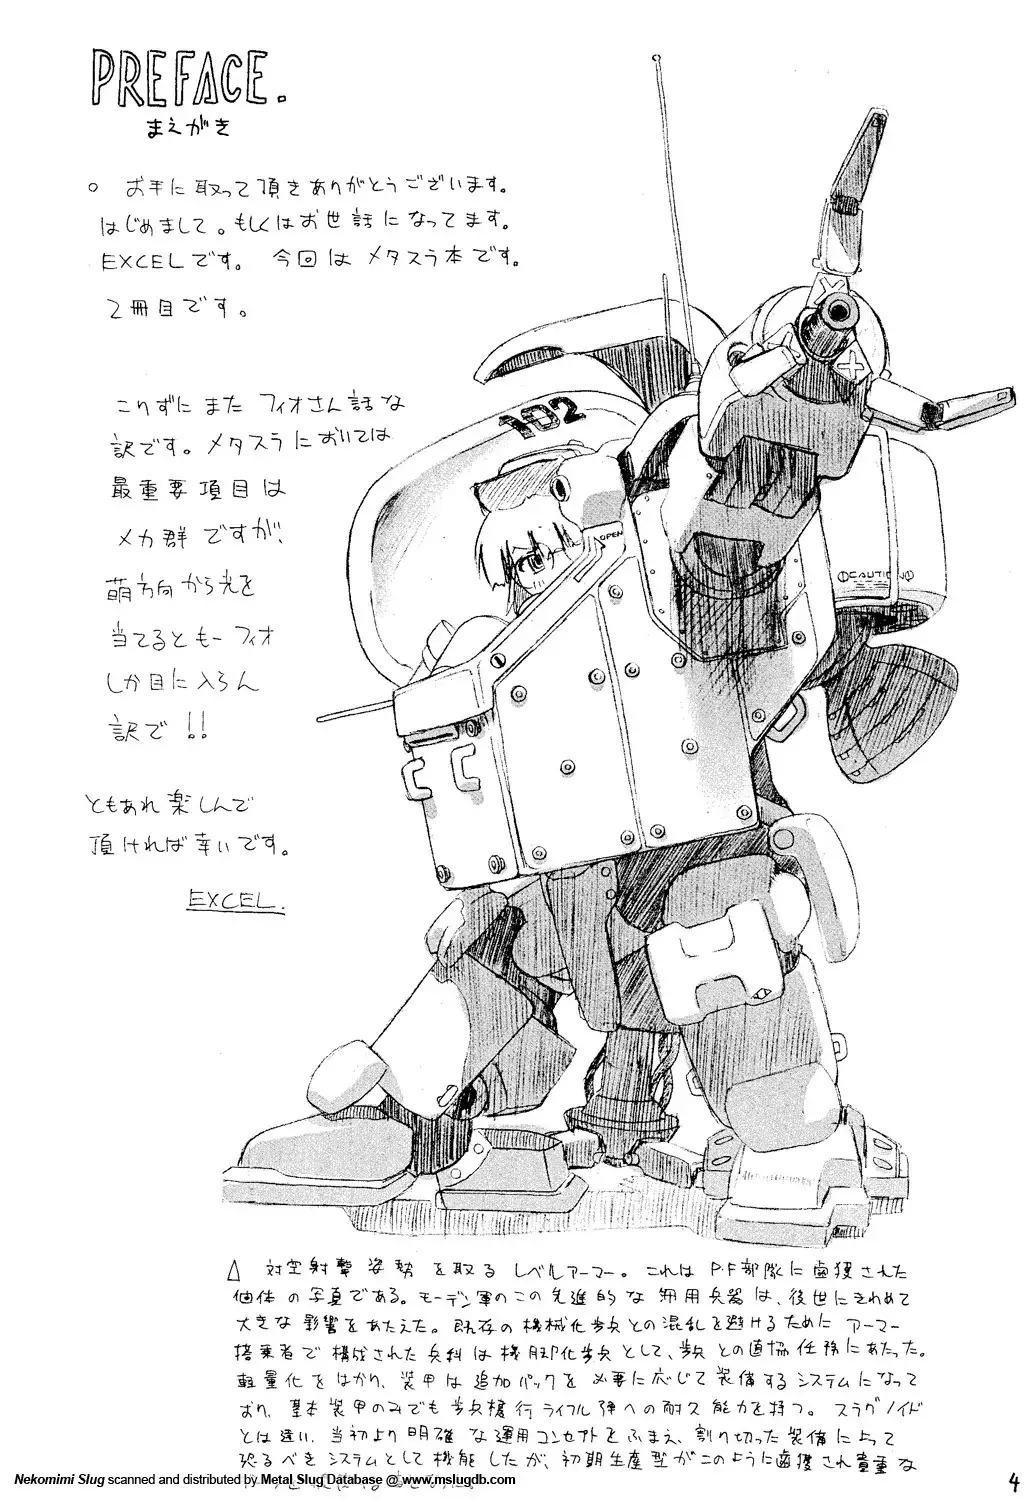 PREFACE.
まえがき
○ お手に取って頂きありがとうございます。
はじめまして。もしくはお世話になってます。
EXCELです。 今回は メタスラ本です。
2冊目です。
こりずにまた フィオさん話な
訳です。メタスラにおいては
最重要項目は
メカ群ですが、
萌方向から光を
当てるともーフィオ
しか目に入らん
訳で!!
ともあれ楽しんで
頂ければ幸いです。
EXCEL.
102
OPEN
CAUTION
△ 対空射撃姿勢を取るレベルアーマー。これはP.F部隊に鹵獲された
個体の写真である。モーデン軍のこの先進的な 兵器は、後世にきわめて
大きな影響をあたえた。既存の機械化歩兵との混乱を避けるために アーマー
搭乗者で構成された兵科は機脚化歩兵として、歩兵との直協任務にあたった。
軽量化をはかり、装甲は追加パックを必要に応じて装備するシステムになって
おり、基本装甲のみでも歩兵携行ライフル弾への耐久能力を持つ。スラグノイド
とは違い、当初より明確な運用コンセプトをふまえ、割り切った装備によって
恐るべきシステムとして機能したが、初期生産型がこのように鹵獲され貴重な
Nekomimi Slug scanned and distributed by Metal Slug Database @ www.mslugdb.com
4